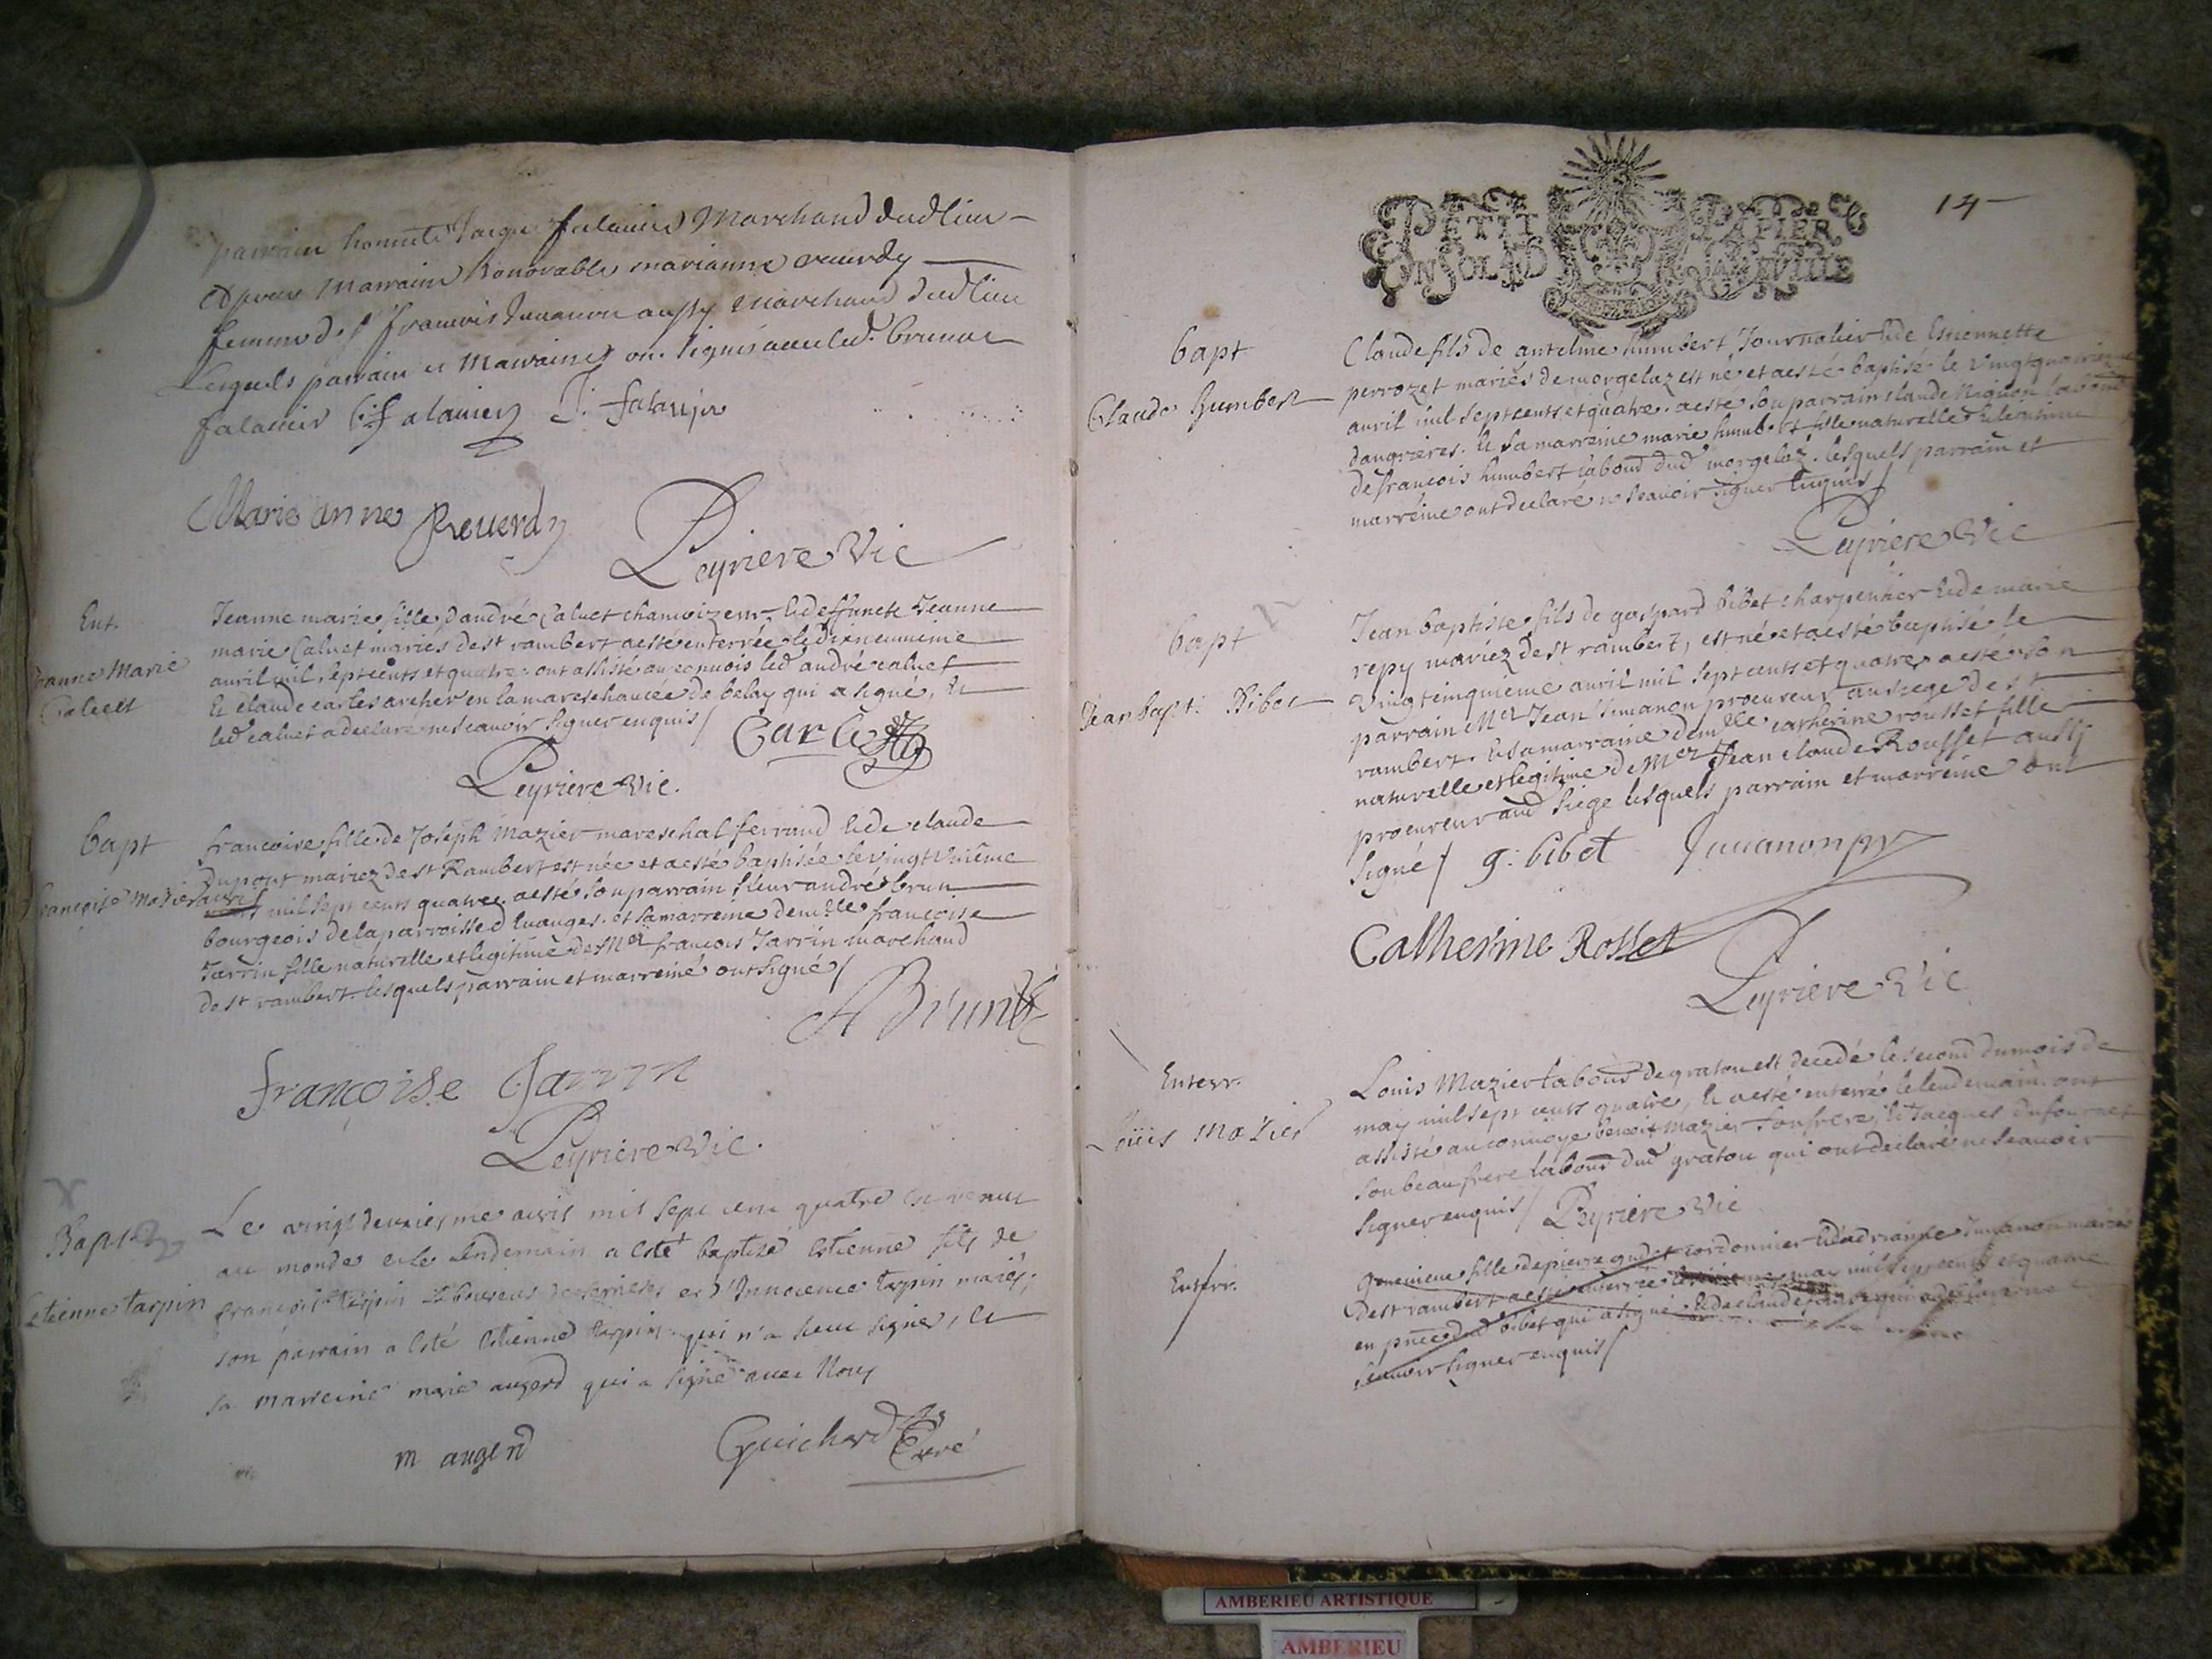 parrain honneste Jacque falavier Marchand dud lieu
et pour Marraine honorable marianne reverdy
femme de Sr francois Juvanon aussy marchand dud lieu
Lesquels parrain et Marraine ont signés avec led.
falavier falavier J. falavier
Marie anne Reverdy
Leyriere Vic
Ent.
Jeanne Marie
Caluet
Jeanne marie fille d'andré Caluet chamoizeur, & deffuncte Jeanne
marie Caluet mariés de st rambert a esté enterrée le dixneuvieme
avril mil septcents et quatre. ont assisté au convois led andré caluet
& claude carles archer en la mareschaucée de belay qui a signé, &
led caluet a declaré ne scavoir signer enquis /
Carle
Leyriere Vic.
bapt
françoise Mazier
francoise fille de Joseph Mazier mareschal ferrand & de claude
Dupont mariez de st Rambert est née et a esté baptisée le vingt unième
avril mil sept cents quatre. a esté son parrain sieur andré brun
bourgeois de la parroisse d'Evanges. et sa marreine demlle françoise
Jarrin fille naturelle et legitime de Mer françois Jarrin marchand
de st rambert. lesquels parrain et marreine ont signé /
A Brun
françoise Jarrin
Leyriere Vic.
Bapt
Estienne tarpin
Le vingt deuxiesme avril mil sept cent quatre est venu
au monde et le lendemain a esté baptizé Estienne fils de
françois tarpin et Innocence tarpin mariés;
son parrain a esté Estienne tarpin qui n'a sceu signer, et
sa marreine marie augerd qui a signé avec Nous
m augerd
Guichard Curé
PETIT PAPIER
UN SOL LA FEUILLE
14
bapt
Claude humbert
Claude fils de antelme humbert Journalier & de Estiennette
perrozet mariés de morgelaz est né et a esté baptisé le vingtquatrieme
avril mil septcents et quatre. a esté son parrain claude
d'angrieres. & sa marreine marie humbert fille naturelle & legitime
de francois humbert labour dud morgelaz. lesquels parrain et
marreine ont declaré ne scavoir signer enquis /
Leyriere Vic
bapt
Jean bapt. Bibet
Jean baptiste fils de gaspard bibet charpentier & de marie
repy mariez de st rambert, est né et a esté baptisé le
vingtcinquieme avril mil sept cents et quatre a esté son
parrain Mer Jean Juvanon procureur au siege de st
rambert. & sa marraine demlle catherine rousset fille
naturelle et legitime de Mer Jean claude Rousset aussy
procureur aud siege lesquels parrain et marreine ont
signé / g. bibet Juvanon
Catherine Rosset
Leyriere Vic
Enterr.
Loüis Mazier
Louis Mazier labour de gratou est decedé le second du mois de
may mil sept cents quatre, & a esté enterré le lendemain. ont
assisté au convoye benoit Mazier son frere, & Jacques dufournet
son beau frere labour dud gratou qui ont declaré ne scavoir
signer enquis / Leyriere Vic
Enterr.
Genevieve fille de pierre cordonnier & d'adrianne Juvanon mariés
de st rambert a esté enterrée may mil septcents et quatre
en pnce dud bibet qui a signé & de claude
scavoir signer enquis /
AMBERIEU ARTISTIQUE
AMBERIEU